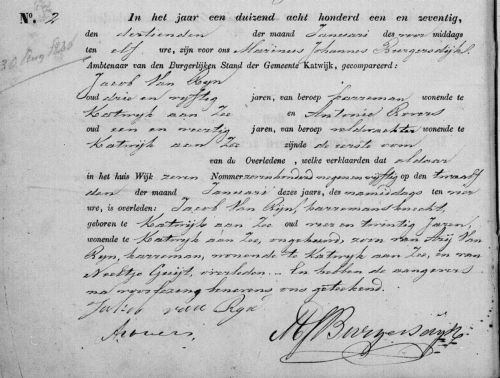 No. 2
In het jaar een duizend acht honderd een en zeventig,
den dertienden der maand Januari des voor middags
ten elf ure, zijn voor ons Marinus Johannes Burgersdijk,
Ambtenaar van den Burgerlijken Stand der Gemeente Katwijk, gecompareerd:
Jacob Van Rijn
oud drie en vijftig jaren, van beroep karreman wonende te
Katwijk aan Zee en Antonie Rovers
oud een en veertig jaren, van beroep veldwachter wonende te
Katwijk aan Zee zijnde de eerste oom
van de Overledene, welke verklaarden dat aldaar
in het huis Wijk zeven Nommer negen vijftig op den twaalf
den der maand Januari dezes jaars, des namiddags ten
ure, is overleden: Jacob Van Rijn, karremansknecht,
geboren te Katwijk aan Zee oud vier en twintig Jaren,
wonende te Katwijk aan Zee, ongehuwd, zoon van Van
Rijn, karreman, wonende te Katwijk aan Zee, en van
Neeltje overleden. En hebben de aangevers
na voorlezing nevens ons geteekend.
Jakob van Rijn
ARovers
MJBurgersdijk